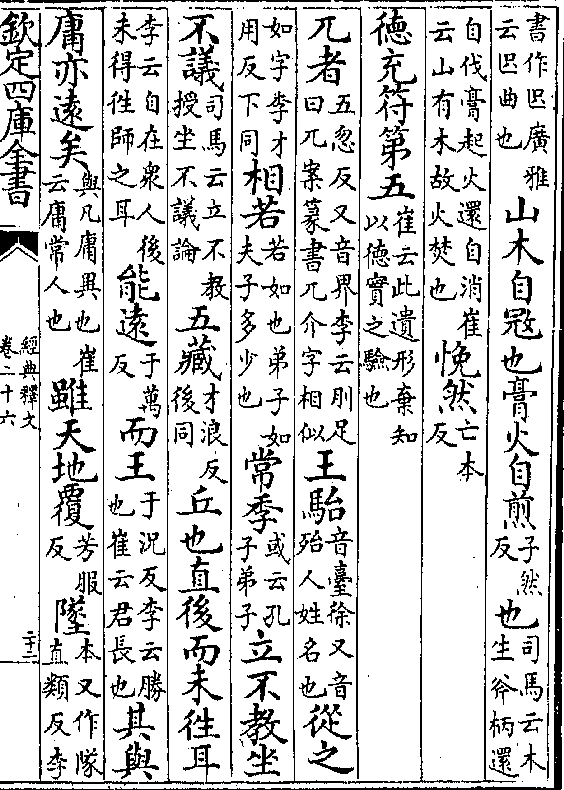 書作廣雅云曲也山木自寇也膏火自煎子然反也司馬云木生斧柄還
自伐膏起火還自消崔云山有木故火焚也悗然亡本反
德充符第五崔云此遺形棄知以德實之驗也
兀者五忽反又音界李云刖足曰兀案篆書兀介字相似王駘音臺徐又音殆人姓名也從之
如字李才用反下同相若若如也弟子如夫子多少也常季或云孔子弟子立不教坐
不議司馬云立不教授坐不議論五藏才浪反後同丘也直後而未往耳
李云自在衆人後未得徃師之耳能遠于萬反而王于況反李云勝也崔云君長也其與
庸亦遠矣與凡庸異也崔云庸常人也雖天地覆芳服反墜本又作隊直類反李
欽定四庫全書
經典釋文
卷二十六
二十二